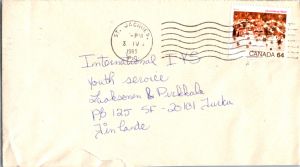 ST. JACQUES,
PM
3 IV
1985
CANADA 64
International IYS
Youth service
Laaksonen & Pirkkala
PB 125 SF-20101 Turku
Finlande